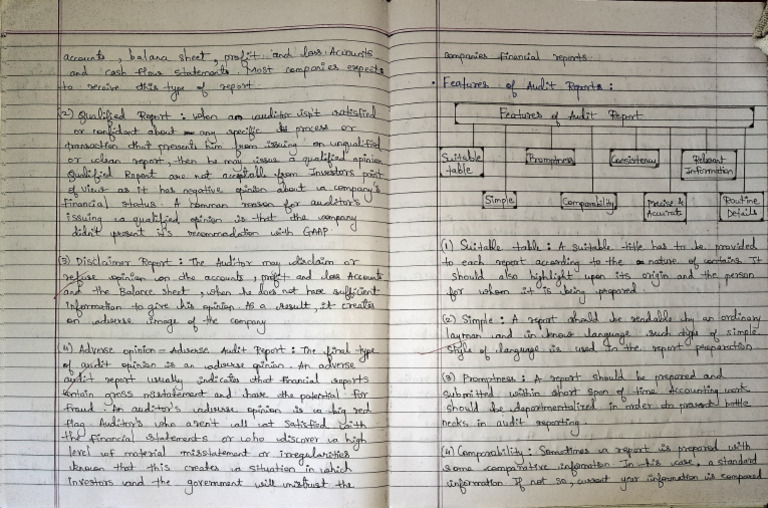 accounts, balans sheet, profit and loss Accounts
and cash flow statements. Most companies expects
to receive this type of report.
(2) Qualified Report : When an auditor isn't satisfied
or confident about any specific process or
transaction that prevents him from issuing an unqualified
or clean report, then he may issue a qualified opinion
Qualified Report are not acceptable from Investors point
of View as it has negative opinion about a company's
financial status. A common reason for auditor's
issuing a qualified opinion is that the company
didn't present it's with GAAP.
(3) Disclaimer Report : The Auditor may disclaim or
refuse opinion on the accounts, profit and loss Account
and the Balance sheet, when he does not have sufficient
Information to give his opinion. As a result, it creates
an adverse image of the company
(4) Adverse opinion - Adverse Audit Report : The final type
of audit opinion is an adverse opinion. An adverse
audit report usually indicates that financial reports
contain gross misstatement and have the potential for
fraud. An auditor's adverse opinion is a big red
flag Auditor's who aren't all satisfied with
the financial statements or who discover a high
level of material misstatement or irregularities
known that this creates a situation in which
Investors and the government will mistrust the
companies financial reports.
• Features of Audit Reports :
Features of Audit Report
Suitable table
Promptness
Consistency
Relevant Information
Simple
Comparability
Precise & Accurate
Routine Details
(1) Suitable table : A suitable title has to be provided
to each report according to the nature of contains. It
should also highlight upon its origin and the person
for whom it is being prepared.
(2) Simple : A report should be readable by an ordinary
layman and in know language such type of simple
style of language is used in the report preparation
(3) Promptness : A report should be prepared and
submitted within short span of time Accounting work
should be departmentalized in order to prevent bottle
necks in audit reporting.
(4) Comparability : Sometimes a report is prepared with
some comparative information In his case, a standard
information If not so, current year information is compared